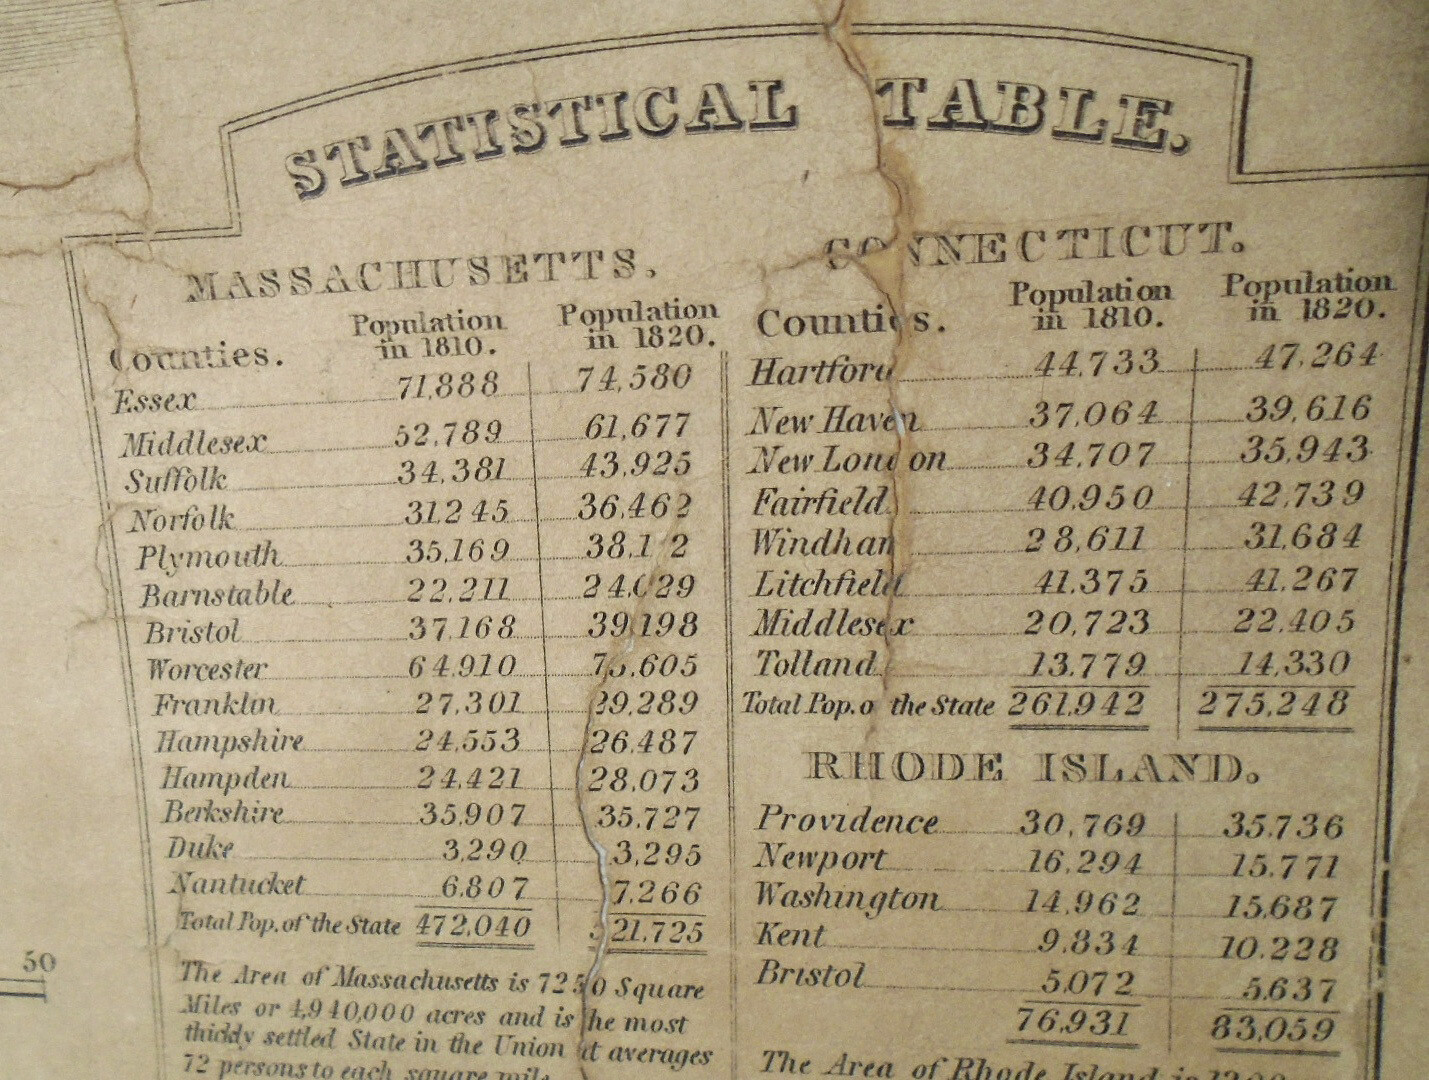 STATISTICAL TABLE.
MASSACHUSETTS.
Counties. Population in 1810. Population in 1820.
Essex 71,888 74,580
Middlesex 52,789 61,677
Suffolk 34,381 43,925
Norfolk 31245 36,462
Plymouth 35,169
Barnstable 22,211
Bristol 37,168 39,198
Worcester 64,910
Franklin 27,301 29,289
Hampshire 24,553 26,487
Hampden 24,421 28,073
Berkshire 35,907 35,727
Duke 3,290 3,295
Nantucket 6,807 7,266
Total Pop. of the State 472,040
The Area of Massachusetts is 7250 Square
Miles or 4,940,000 acres and is the most
thickly settled State in the Union it averages
72 persons to each square mile
CONNECTICUT.
Counties. Population in 1810. Population in 1820.
Hartford 44,733 47,264
New Haven 37,064 39,616
New London 34,707 35,943
Fairfield 40,950 42,739
Windham 28,611 31,684
Litchfield 41,375 41,267
Middlesex 20,723 22,405
Tolland 13,779 14,330
Total Pop. o the State 261,942 275,248
RHODE ISLAND.
Providence 30,769 35,736
Newport 16,294 15,771
Washington 14,962 15,687
Kent 9,834 10,228
Bristol 5,072 5,637
76,931 83,059
The Area of Rhode Island is
50